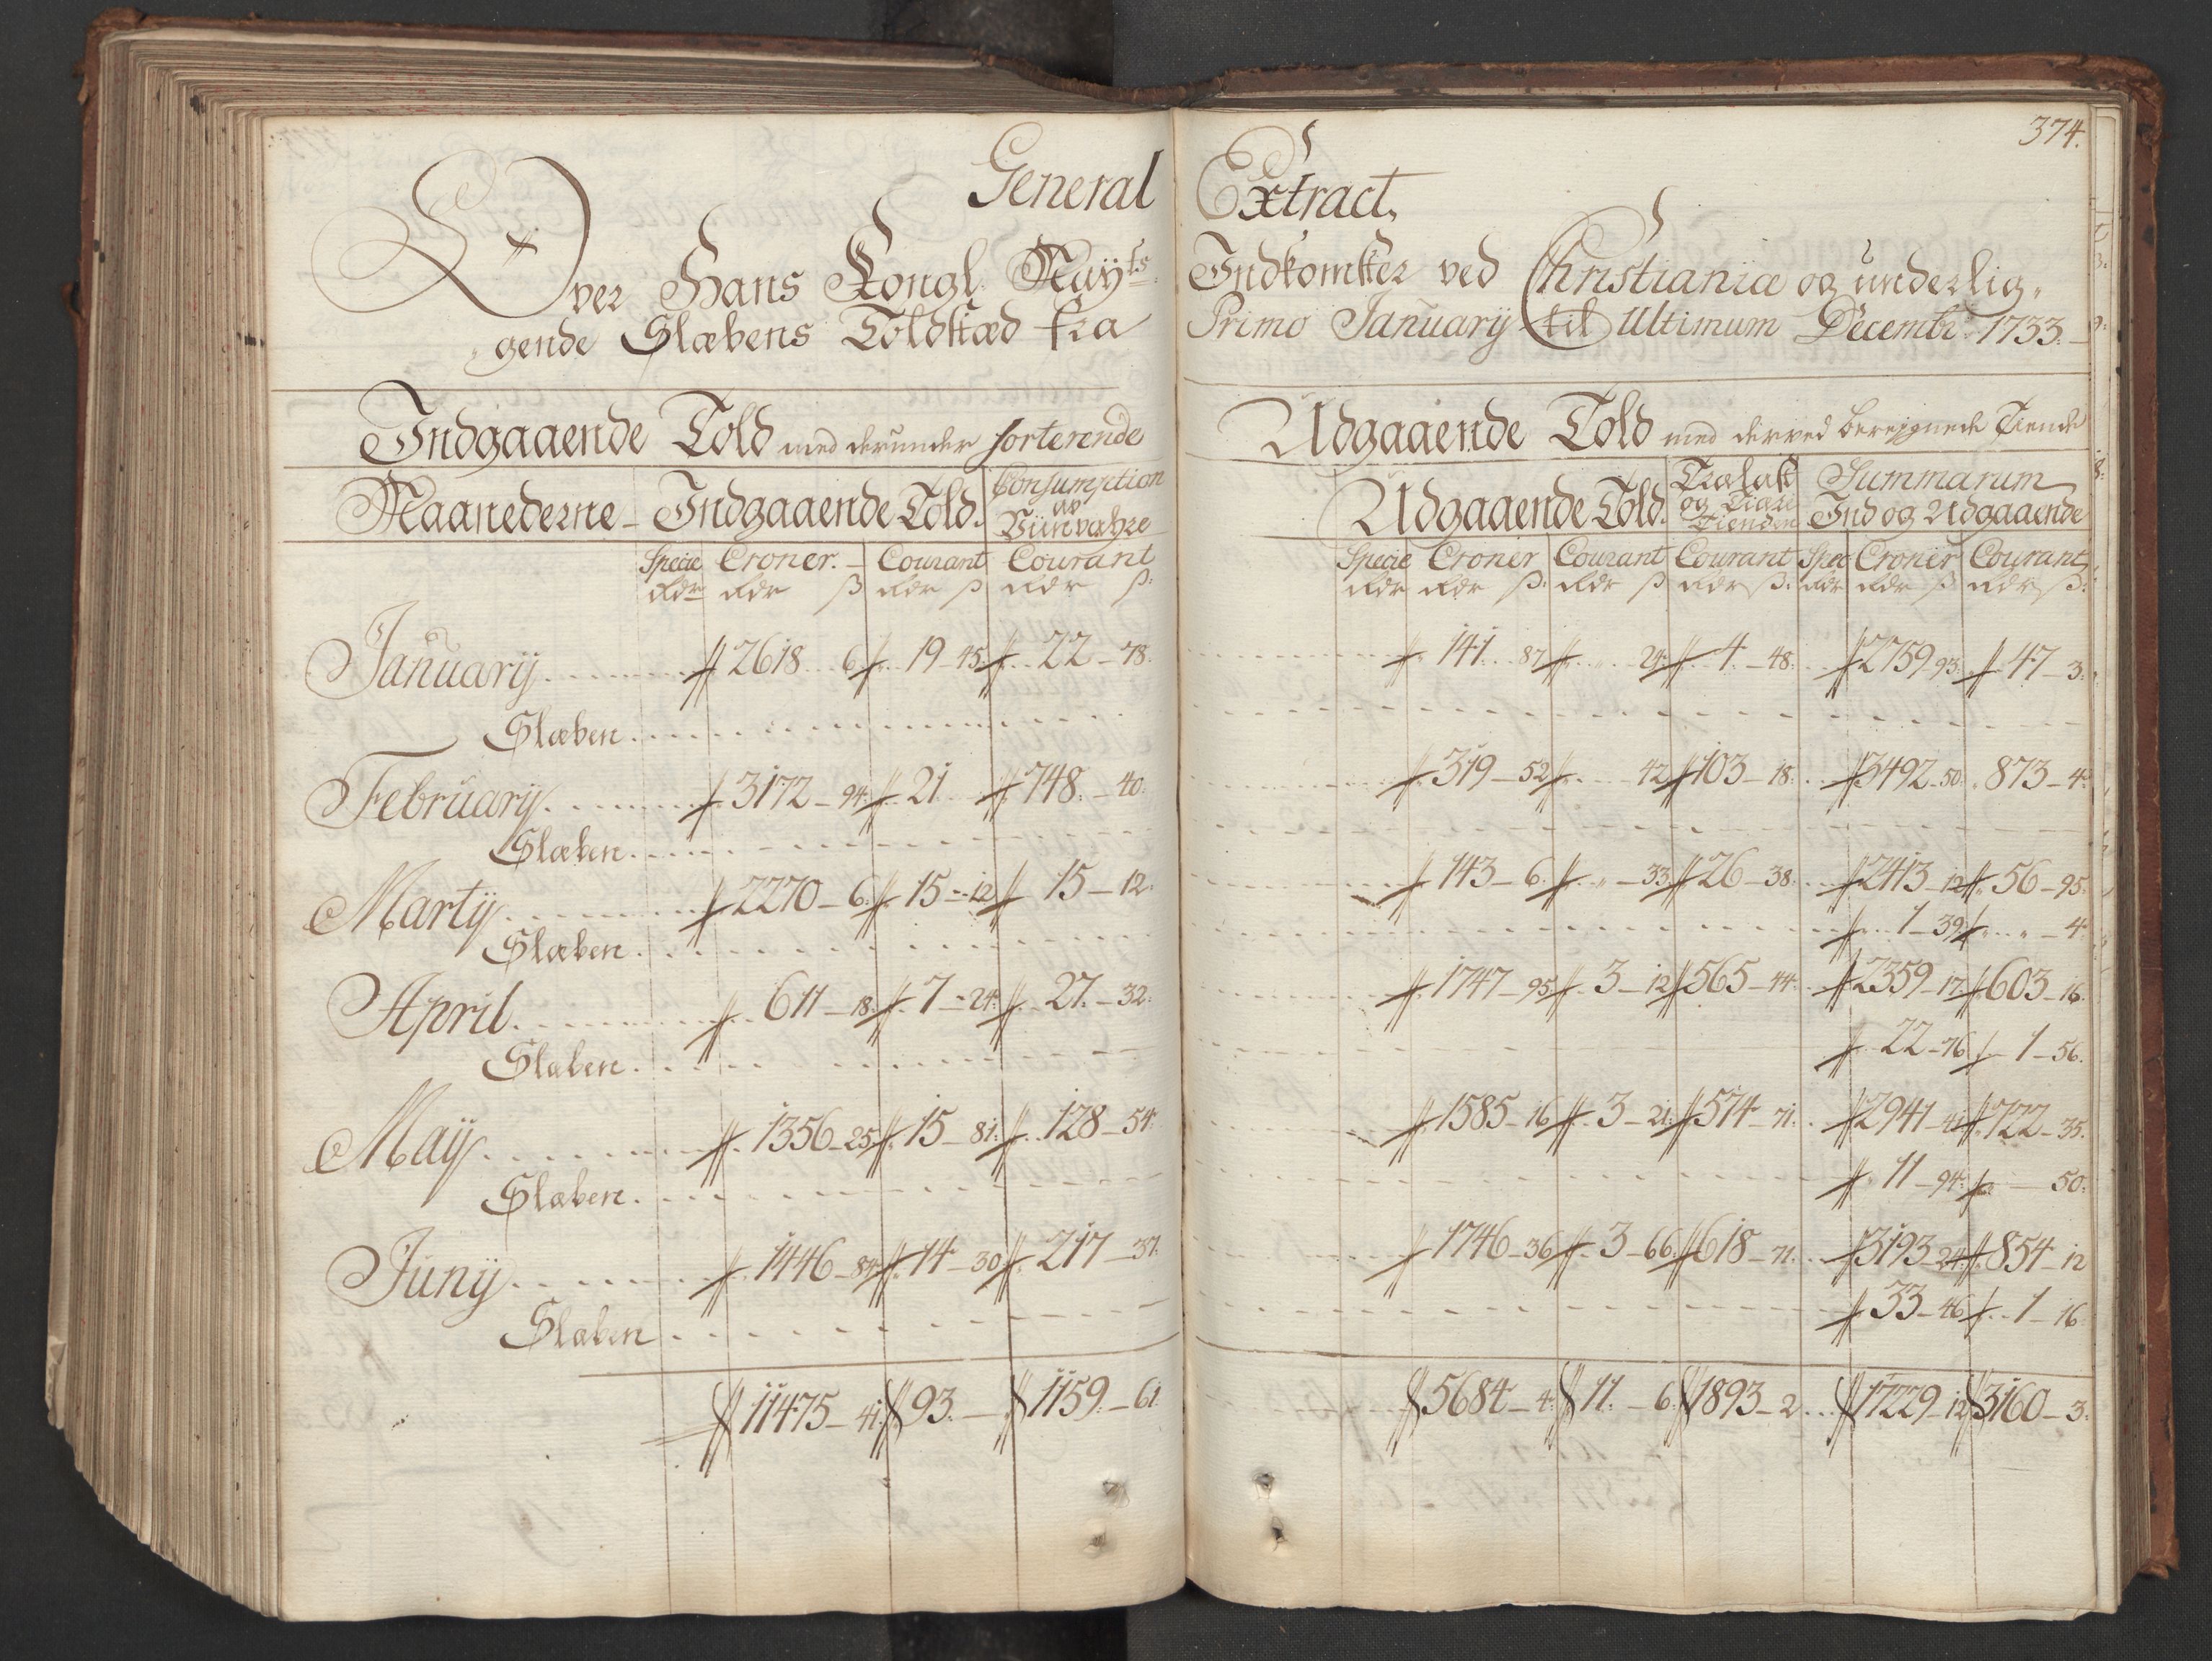 374.
General Extract,
Over Hans Kongl. Mayts. Indkomster ved Christiania og underlig„
„gende Slæbens Toldstæd fra Primo Januarij til Ultimum Decembr. 1733.
Indgaaende Told med derunder sorterende
Udgaaende Told med derved bereignede Tiende
Maanederne Indgaaende Told. Consumption av Viinvahre
Udgaaende Told. Trælast og Tiære Tienden Summarum Ind og Udgaaende
Specie Croner. Courant Courant
Specie Croner Courant Courant Spec Croner Courant
Rdr Rdr ß Rdr ß Rdr ß:
Rdr Rdr ß: Rdr ß Rdr ß: Rdr Rdr ß Rdr ß:
Januarij 2618 6 19 45 22 78.
141 87 24 4 48: 2759 93 47 3:
Slæben
Februarij 3172 94 21 748. 40.
319 52 42 103 18. 3492 50 873 4
Slæben
Martij 2270 6 15 12 15 12.
143 6 33 26 38. 2413 12 56 95.
Slæben. 1 39 4
April. 611 18. 7 24 27. 32.
1747 95 3 12 565 44 2359 17. 603 16.
Slæben. 22 76 1 56.
Maij 1356 25 15 81. 128 54.
1585 16 3 21 574 71. 2941 41 722 35.
Slæben. 11 94 50.
Junij 1446 84 14 30 217 37.
1746 36 3 66 618 71. 3193 24 854 12
Slæben 33 46 1 16
11475 41 93. 1159. 61
5684 4 11. 6 1893 2 17229 12 3160 3.